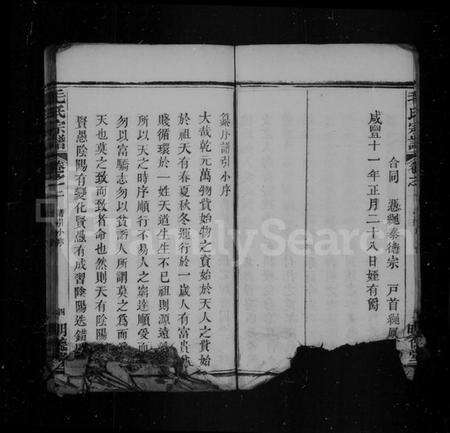 合同 憑繩泰德宗 戶首
咸豐十一年正月二十八日姪有爵
毛氏宗譜
篡序譜引小序
大哉乾元萬物資始物之資始於天人之資始
於祖天有春夏秋冬運行於一歲人有富貴
賤循環於一姓天道生生不已祖則源遠
所以天之時序順行不易人之窮達順受而
勿以富驕志勿以貧諂人所謂莫之為而
天也莫之致而致者命也然則天有陰陽
賢愚陰陽有變化賢愚有成習陰陽迭錯
毛氏宗譜
譜引小序
四
FamilySearch